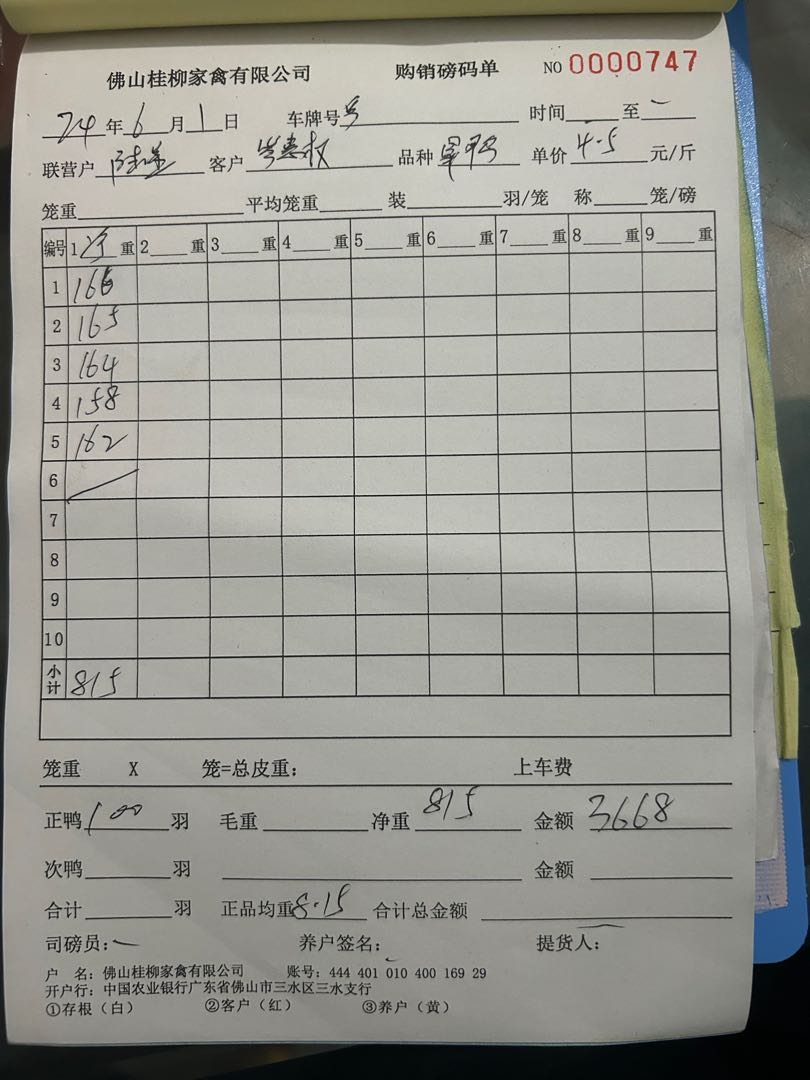 佛山桂柳家禽有限公司 购销磅码单 NO 0000747
24 年 6 月 1 日 车牌号 时间 至
联营户 客户 品种 单价 4.5 元/斤
笼重 平均笼重 装 羽/笼 称 笼/磅
编号 1 重 2 重 3 重 4 重 5 重 6 重 7 重 8 重 9 重
1 166
2 165
3 164
4 158
5 162
6
7
8
9
10
小计 815
笼重 X 笼=总皮重: 上车费
正鸭 100 羽 毛重 净重 815 金额 3668
次鸭 羽 金额
合计 羽 正品均重 8.15 合计总金额
司磅员: 养户签名: 提货人:
户 名: 佛山桂柳家禽有限公司 账号: 444 401 010 400 169 29
开户行: 中国农业银行广东省佛山市三水区三水支行
①存根（白） ②客户（红） ③养户（黄）